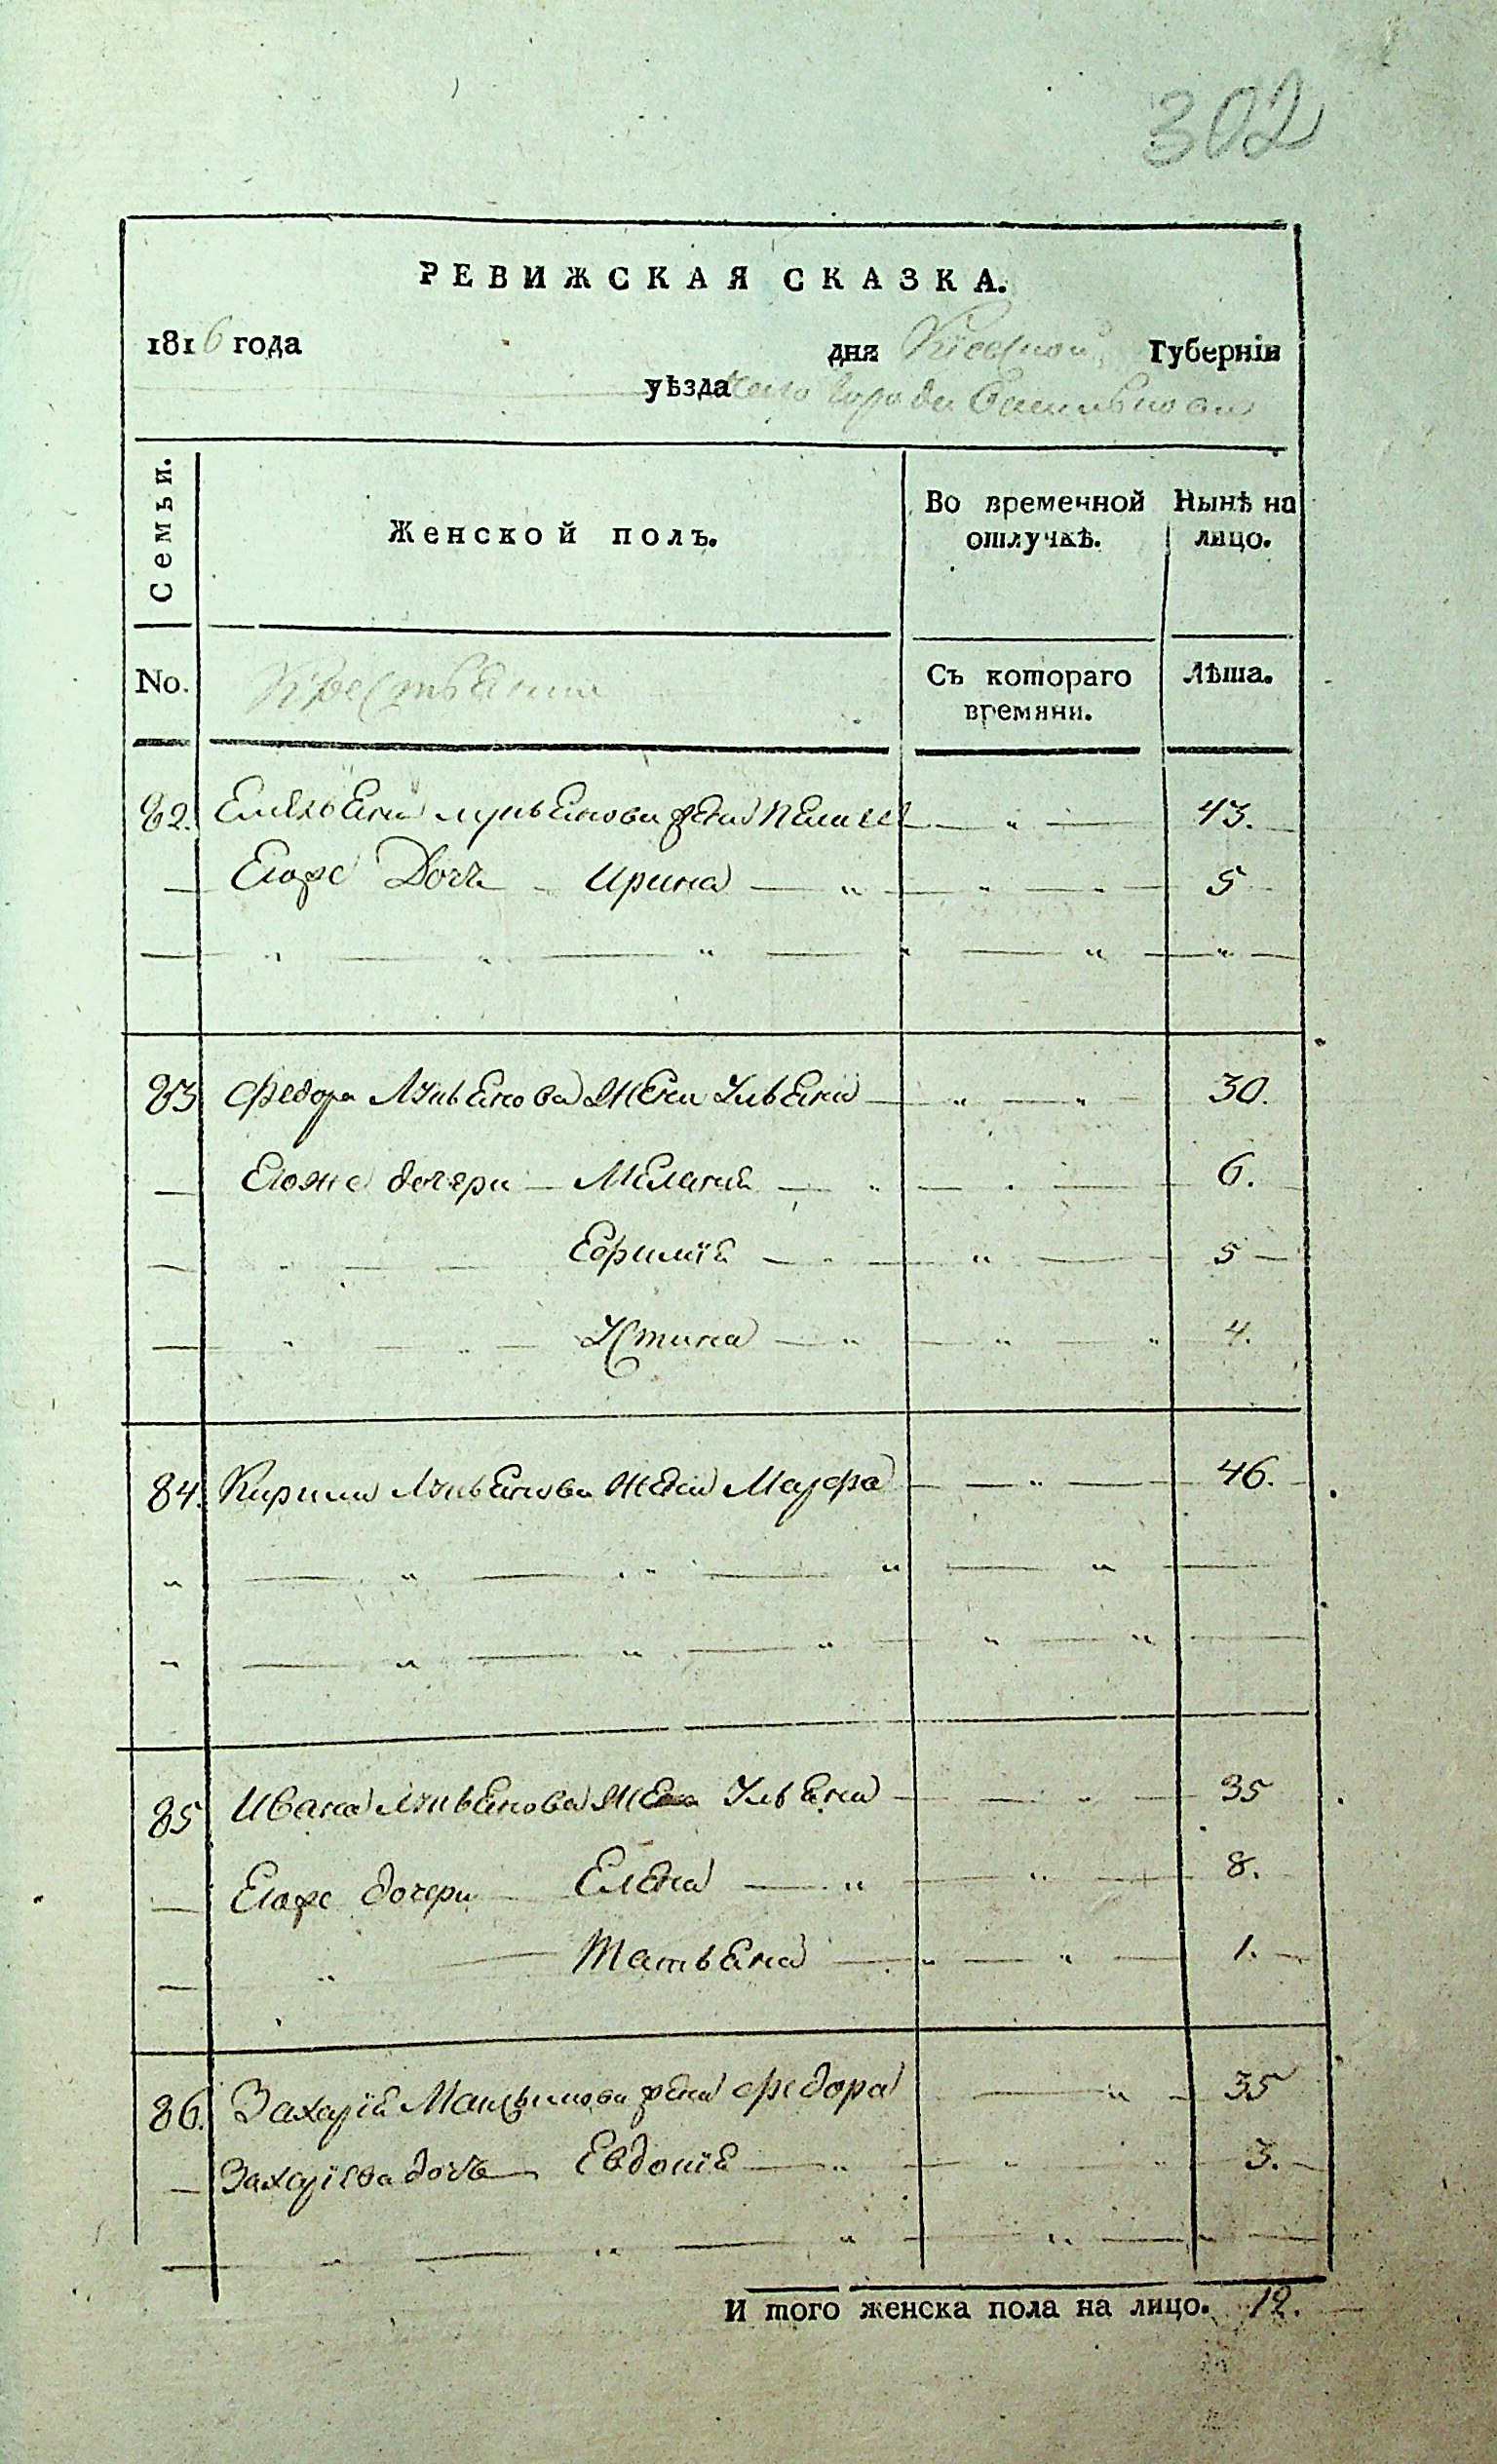 302
РЕВИЖСКАЯ СКАЗКА.
1816 года дня Кіевской Губерніи
уѣзда города Василькова
Семьи. Женской полъ. Во временной отлучкѣ. Нынѣ на лицо.
No. Крестьянин Съ котораго времяни. Лѣта.
82. Емельяна Лукьянова жена Пелагея — „ — 43.
— Егоже Дочь — Ирина — „ — „ — „ — 5
— „ — „ — „ — „ — „ — „ —
83 Федора Лукьянова жена Ульяна — „ — „ 30.
— Егоже дочери — Меланія — „ — „ — 6.
— „ — — Ефимія — „ — „ — 5 —
— „ — „ — Устина — „ — „ — „ 4.
84. Кирила Лукьянова жена Мауфра — — „ — 46.
„ — „ — „ — „ — „ —
„ — „ — „ — „ — „ — „ —
85 Ивана Лукьянова жена Ульяна — — „ — 35
— Егоже дочери — Елена — „ — „ — 8.
— „ — Татьяна — „ — „ — 1. —
86. Захарія Максимова жена Федора — „ — 35
— Захаріева дочь — Евдокія — „ — „ — „ 3. —
— „ — „ — „ — „ — „ —
И того женска пола на лицо. 12.